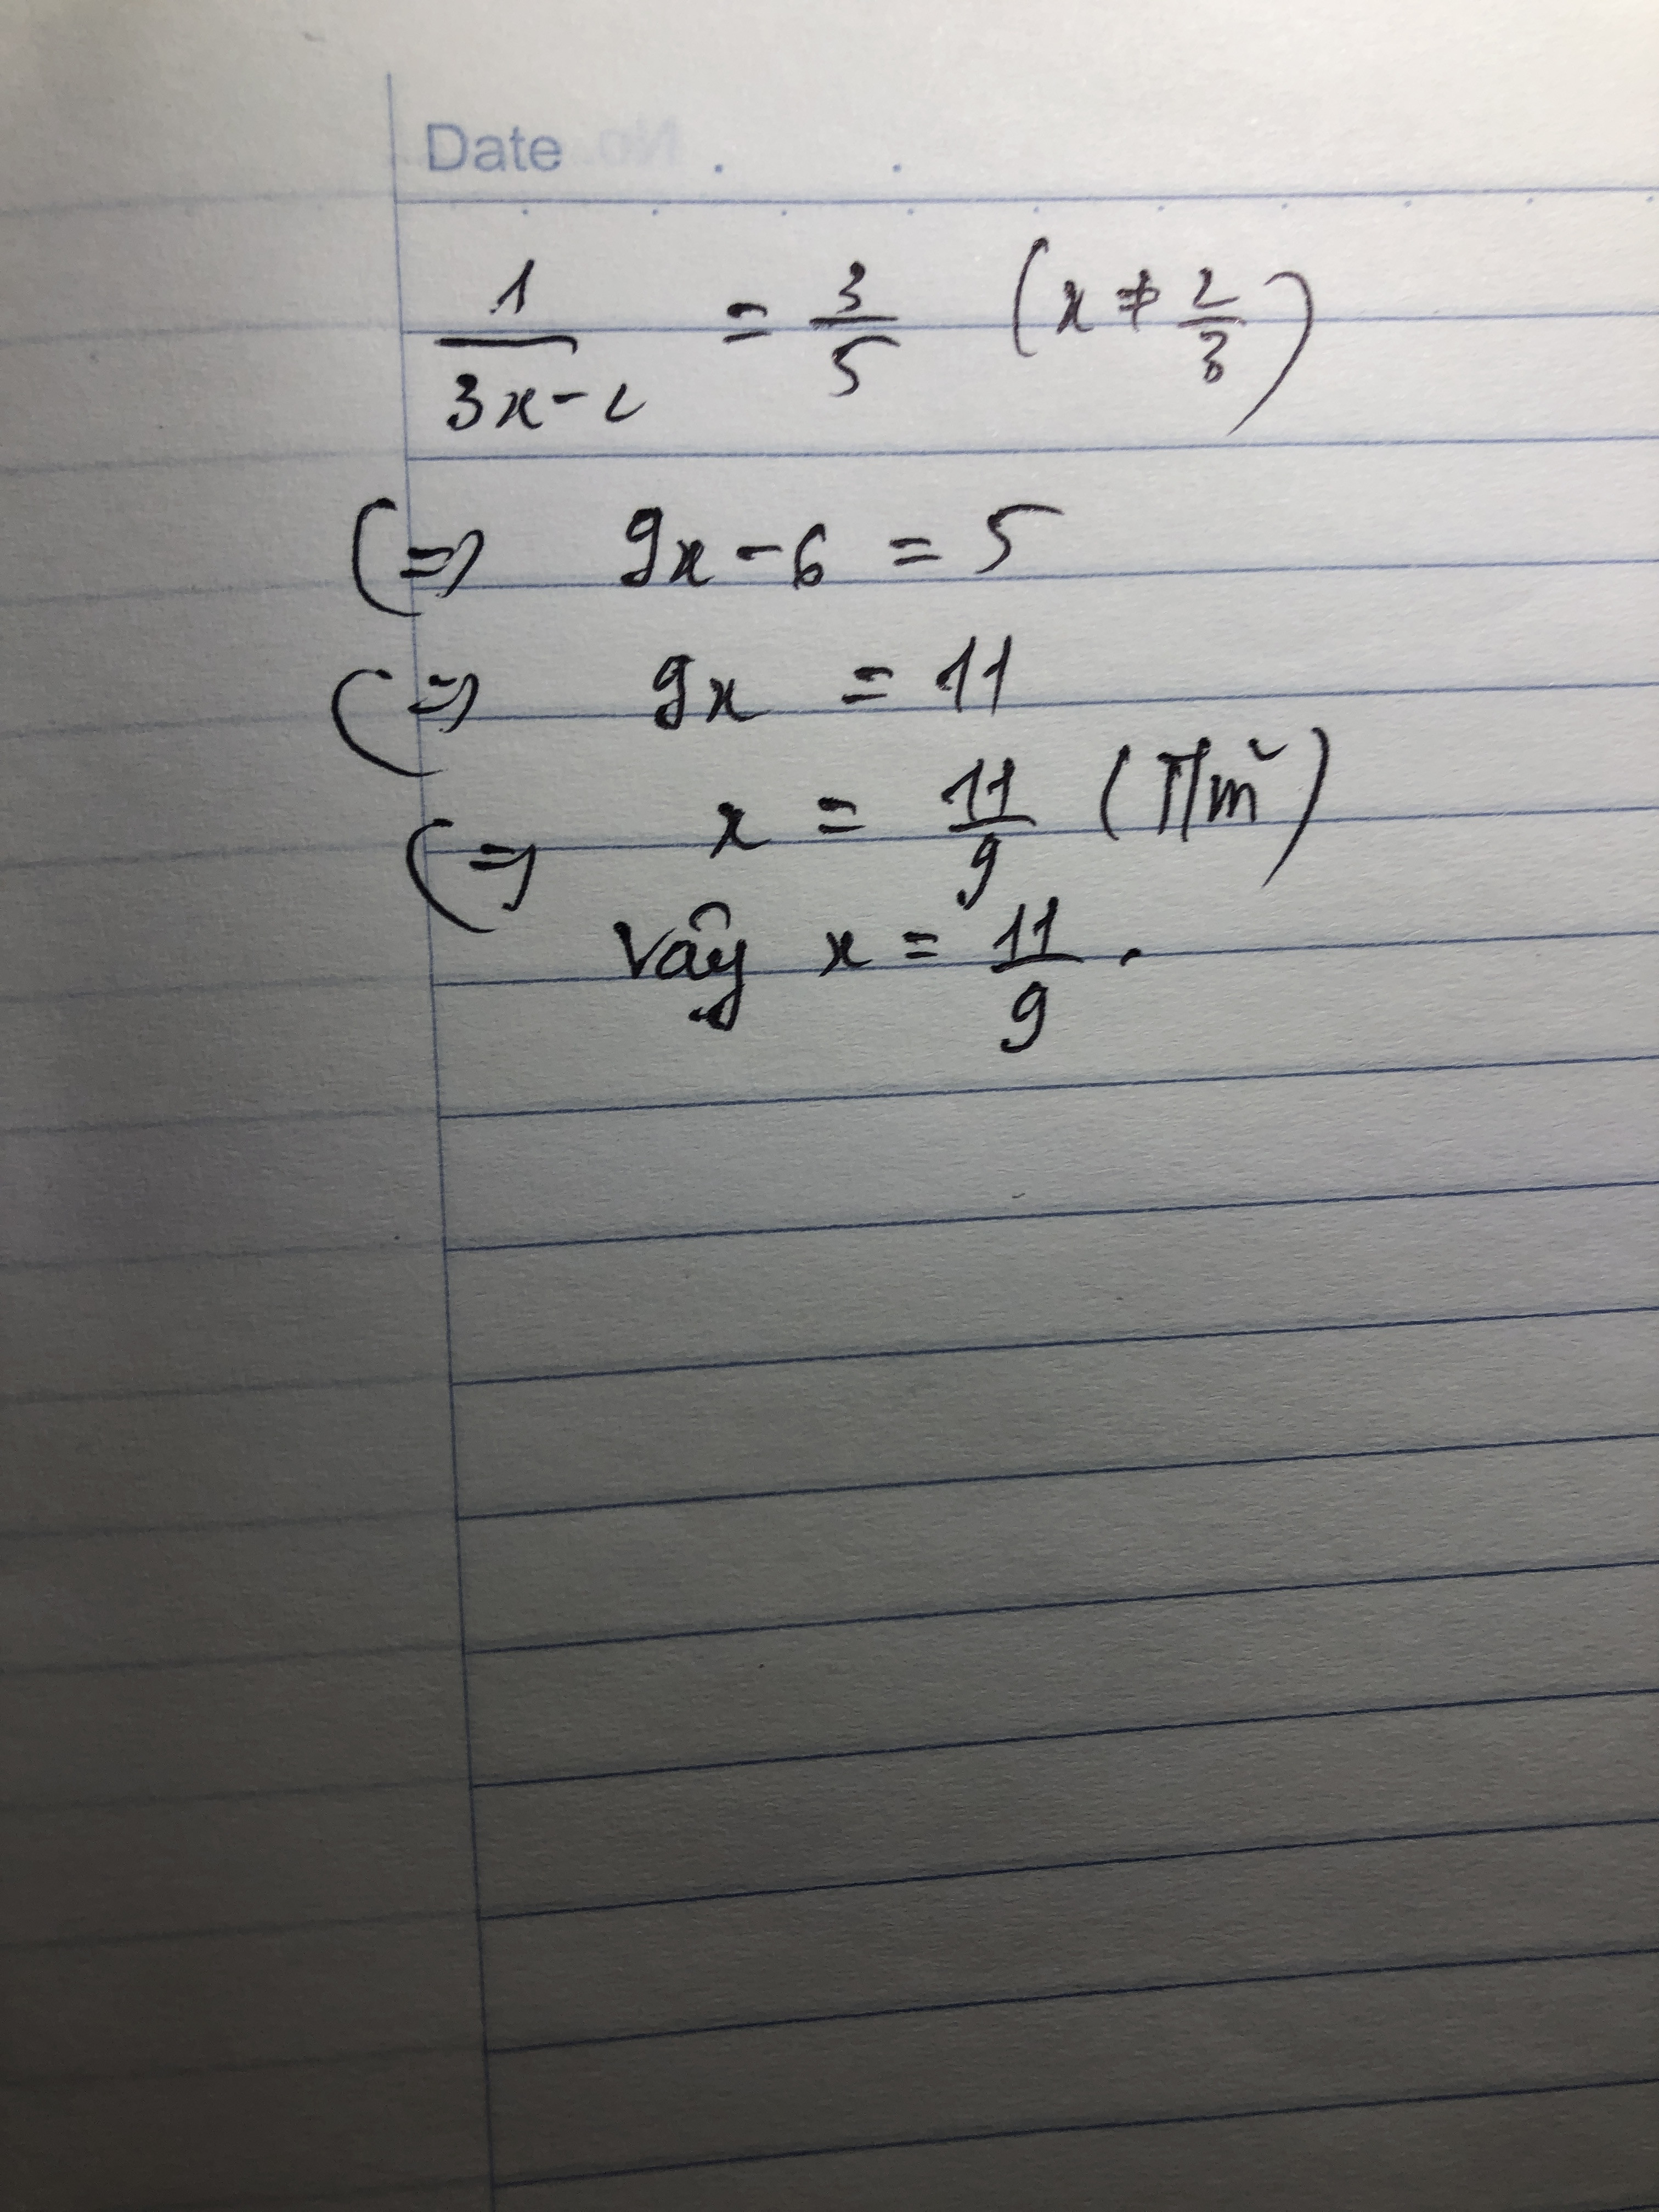 Date . .
1/(3x-2) = 3/5 (x ≠ 2/3)
(=) 9x - 6 = 5
(=) 9x = 11
(=) x = 11/9 (TM)
Vậy x = 11/9.